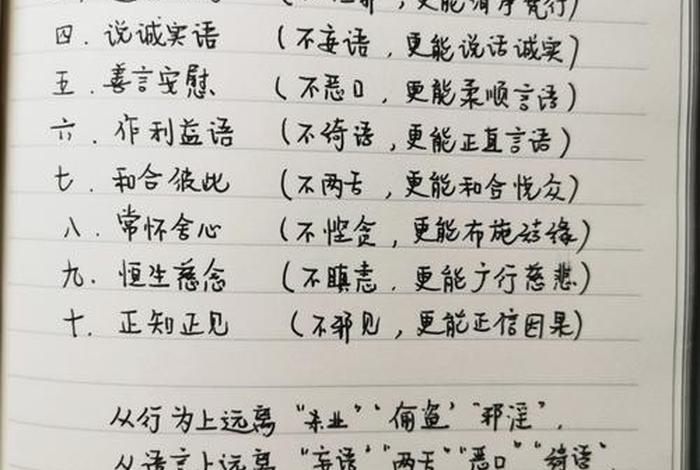 更能清净梵行)
四．说诚实语 (不妄语，更能说话诚实)
五．善言安慰 (不恶口，更能柔顺言语)
六．作利益语 (不绮语，更能正直言语)
七．和合彼此 (不两舌，更能和合悦众)
八．常怀舍心 (不悭贪，更能布施结缘)
九．恒生慈念 (不瞋恚．更能广行慈悲)
十．正知正见 (不邪见，更能正信因果)
从行为上远离“杀业”“偷盗”“邪淫”．
从语言上远离“妄语”“两舌”“恶口”“绮语”